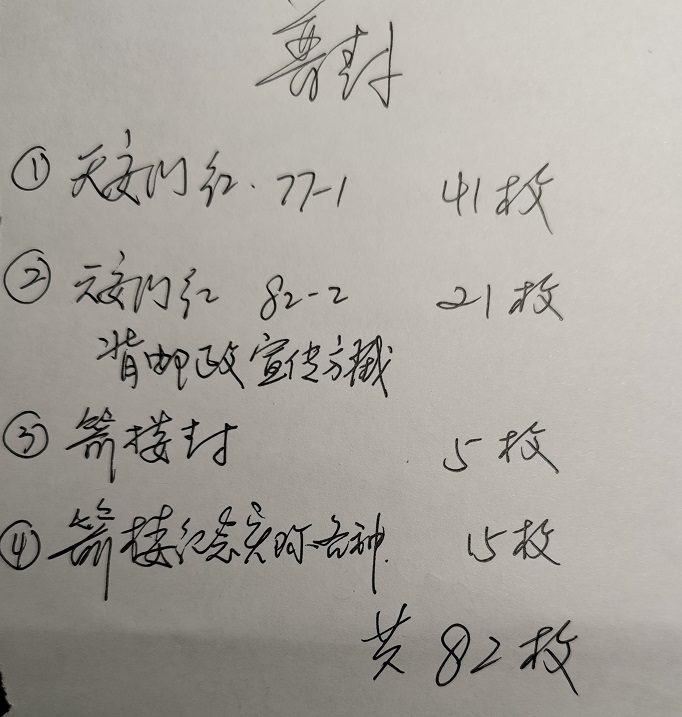 普封
① 天安门红·77-1 41枚
② 天安门红 82-2 21枚
背邮政宣传方戳
③ 箭楼封 5枚
④ 箭楼纪念实际各种 15枚
共82枚